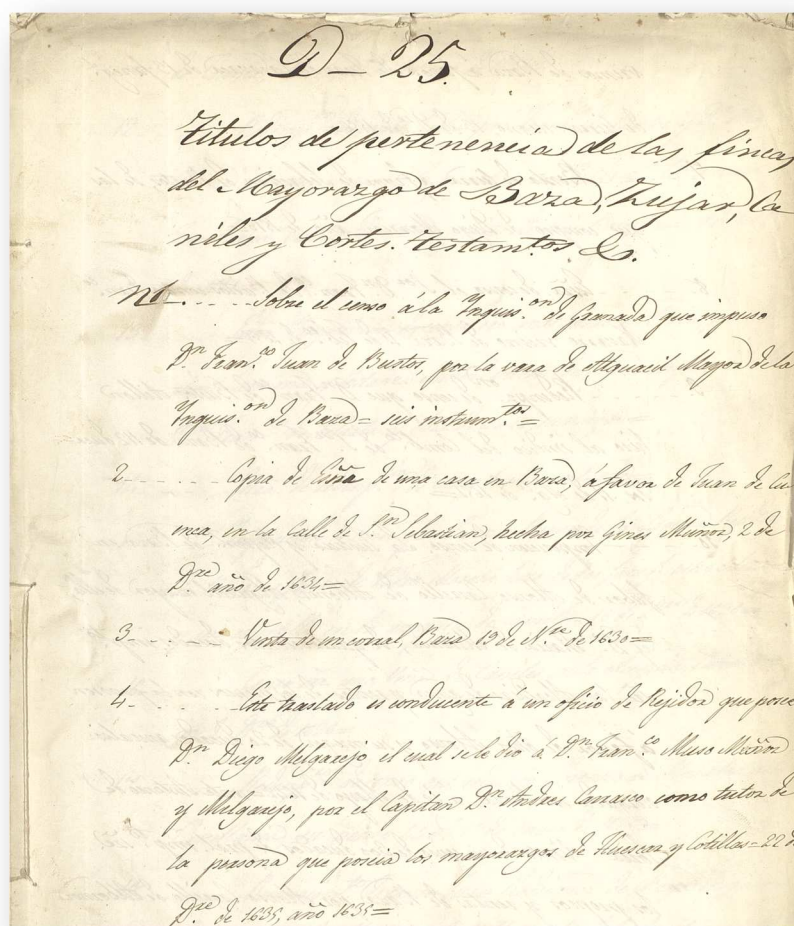 D - 25.
Titulos de pertenencia de las fincas
del Mayorazgo de Baza, Zujar, Ca
niles y Cortes. Testamtos &.
N1. - - - Sobre el censo á la Ynquis.on de Granada que impuso
Dn Fran.co Juan de Bustos, por la vara de Alguacil Mayor de la
Ynquis.on de Baza = seis instrum.tos =
2 - - - - - Copia de de una casa en Baza, á favor de Juan de Cu
enca, en la Calle de S.n Sebastian, hecha por Gines Muñoz, 2 de
D.re año de 1634 =
3 - - - - - Venta de un corral, Baza 19 de N.re de 1630 =
4 - - - - - Este traslado es conducente á un oficio de Rejidor que posee
D.n Diego Melgarejo el cual se le dio á D.n Fran.co Muso Muñoz
y Melgarejo, por el Capitan D.n Andres Carrasco como tutor de
la persona que poseia los mayorazgos de Huescar y Cotillas = 22 d
D.re de 1635, año 1635 =